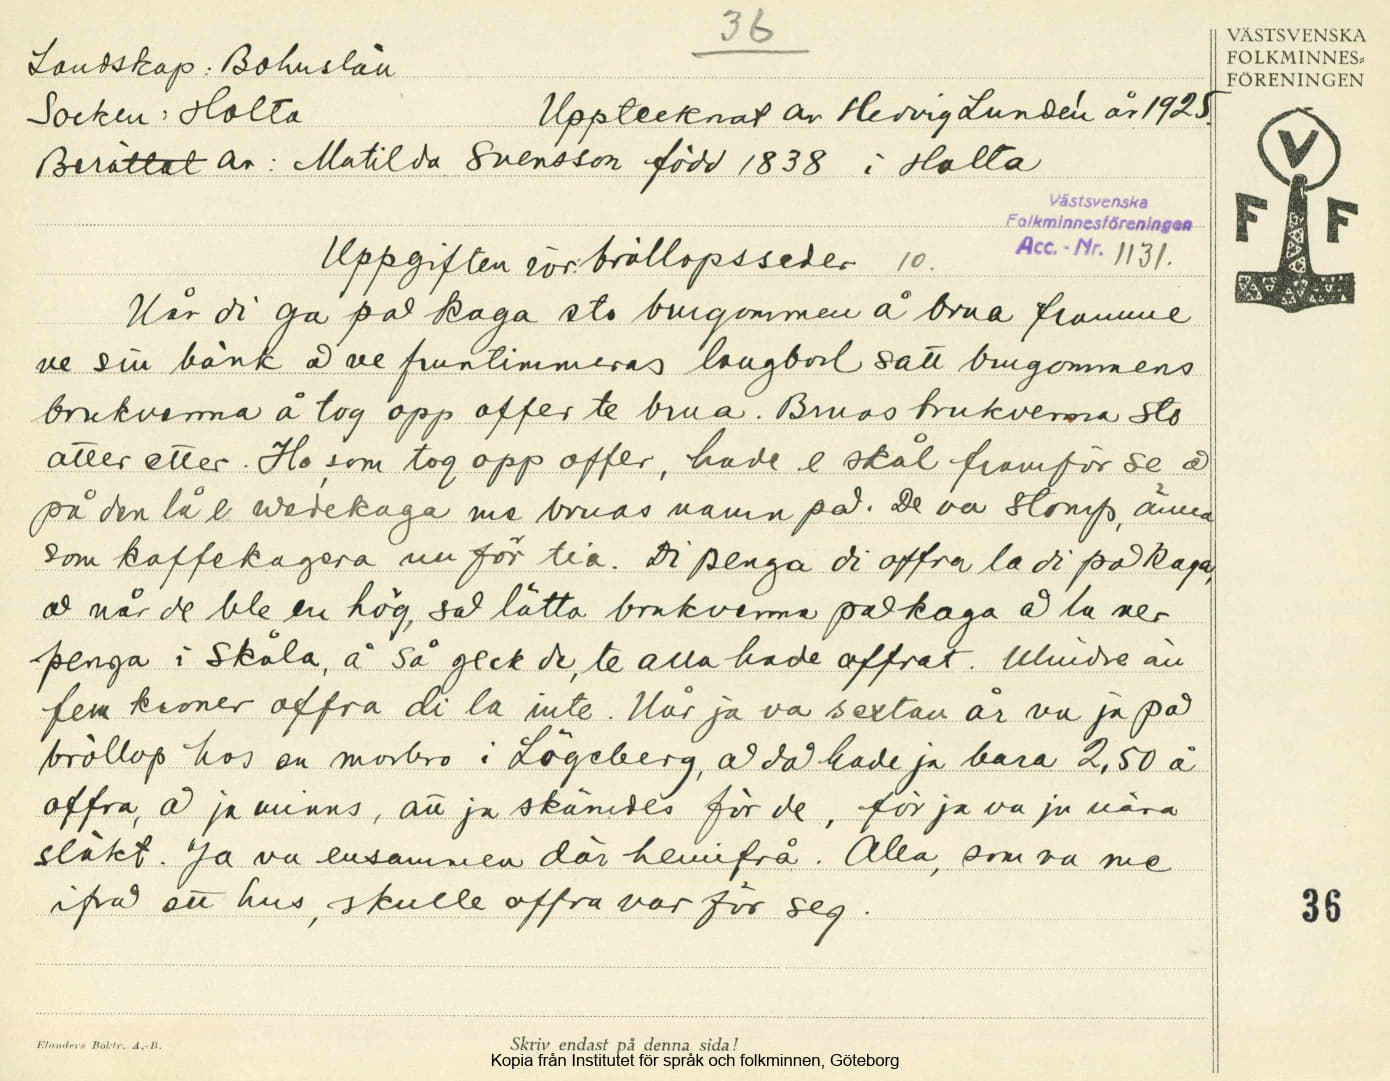 36
VÄSTSVENSKA
FOLKMINNES-
FÖRENINGEN
Landskap: Bohuslän
Socken: Holta Upptecknat av Hedvig Lundén år 1925.
Berättat av: Matilda Svensson född 1838 i Holta
Västsvenska
Folkminnesföreningen
Acc. - Nr. 1131.
V
F F
Uppgiften rör: bröllopsseder 10.
När di ga pad kaga sto brugommen å brua framme
ve sin bänk ad ve fruntimmeras långbord satt brugommens
brukverma å tog opp offer te brua. Bruas brukverma sto
atter etter. Ho, som tog opp offer, hade e skål framför se ad
på den lå e wedekaga me bruas namn pad. De va stomp, änna
som kaffekagera nu för tia. Di penga di offra la di pad kaga,
ad når de ble en hög, sad lätta brukverma pad kaga ad la ner
penga i skåla, å så geck de, te alla hade offrat. Mindre än
fem kroner offra di la inte. Når ja va sextan år va ja pad
bröllop hos en morbro i Lögeberg, ad dad hade ja bara 2,50 å
offra, ad ja minns, att ja skämdes för de, för ja va ju nära
släkt. Ja va ensammen där hemifrå. Alla, som va me
ifrad ett hus, skulle offra var för seg.
36
Elanders Boktr. A.-B.
Skriv endast på denna sida!
Kopia från Institutet för språk och folkminnen, Göteborg